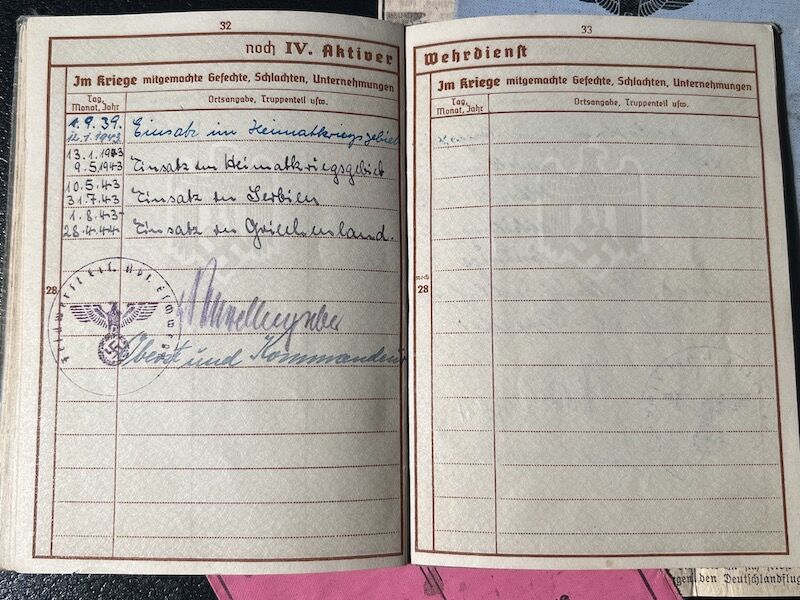 32
noch IV. Aktiver
Im Kriege mitgemachte Gefechte, Schlachten, Unternehmungen
Tag, Monat, Jahr
Ortsangabe, Truppenteil usw.
1.9.39.
12.1.1943
Einsatz im Heimatkriegsgebiet
13.1.1943
9.5.1943
Einsatz im Heimatkriegsgebiet
10.5.43
31.7.43
Einsatz in Serbien
1.8.43-
28.4.44
Einsatz in Griechenland.
28
Oberst und Kommandeur
33
Wehrdienst
Im Kriege mitgemachte Gefechte, Schlachten, Unternehmungen
Tag, Monat, Jahr
Ortsangabe, Truppenteil usw.
noch
28
den Deutschlandflug